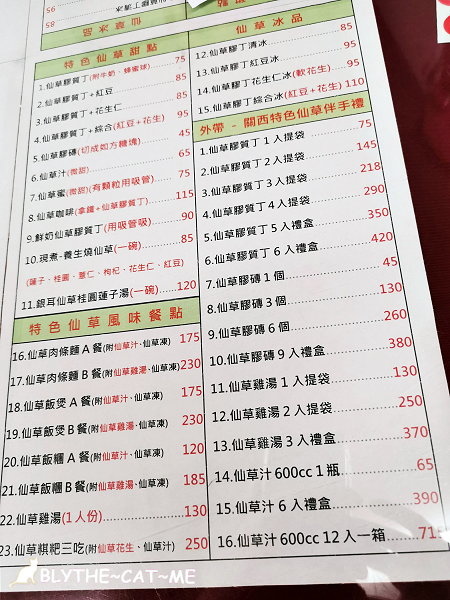 仙草冰品
特色仙草甜點
1.仙草膠質丁(附牛奶、蜂蜜球) 75
2.仙草膠質丁+紅豆 85
3.仙草膠質丁+花生仁 85
4.仙草膠質丁+綜合(紅豆+花生) 95
5.仙草膠磚(切成如方糖塊) 45
6.仙草汁(微甜) 65
7.仙草蜜(微甜)(有顆粒用吸管) 75
8.仙草咖啡(拿鐵+仙草膠質丁) 115
9.鮮奶仙草膠質丁(用吸管吸) 90
10.現煮-養生燒仙草(一碗) 85
(蓮子、桂圓、薏仁、枸杞、花生仁、紅豆)
11.銀耳仙草桂圓蓮子湯(一碗) 120
特色仙草風味餐點
16.仙草肉條麵A餐(附仙草汁、仙草凍) 175
17.仙草肉條麵B餐(附仙草雞湯、仙草凍) 230
18.仙草飯煲A餐(附仙草汁、仙草凍) 175
19.仙草飯煲B餐(附仙草雞湯、仙草凍) 230
20.仙草飯糰A餐(附仙草汁、仙草凍) 120
21.仙草飯糰B餐(附仙草雞湯、仙草凍) 185
22.仙草雞湯(1人份) 130
23.仙草粠粑三吃(附仙草花生、仙草汁) 250
12.仙草膠質丁清冰 85
13.仙草膠質丁紅豆冰 95
14.仙草膠質丁花生仁冰(軟花生) 95
15.仙草膠質丁綜合冰(紅豆+花生) 110
外帶-關西特色仙草伴手禮
1.仙草膠質丁1入提袋 75
2.仙草膠質丁2入提袋 145
3.仙草膠質丁3入提袋 218
4.仙草膠質丁4入提袋 290
5.仙草膠質丁5入禮盒 350
6.仙草膠質丁6入禮盒 420
7.仙草膠磚1個 45
8.仙草膠磚3個 130
9.仙草膠磚6個 260
10.仙草膠磚9入禮盒 380
11.仙草雞湯1入提袋 130
12.仙草雞湯2入提袋 250
13.仙草雞湯3入禮盒 370
14.仙草汁600cc1瓶 65
15.仙草汁6入禮盒 390
16.仙草汁600cc12入一箱 715
BLYTHE~CAT~ME